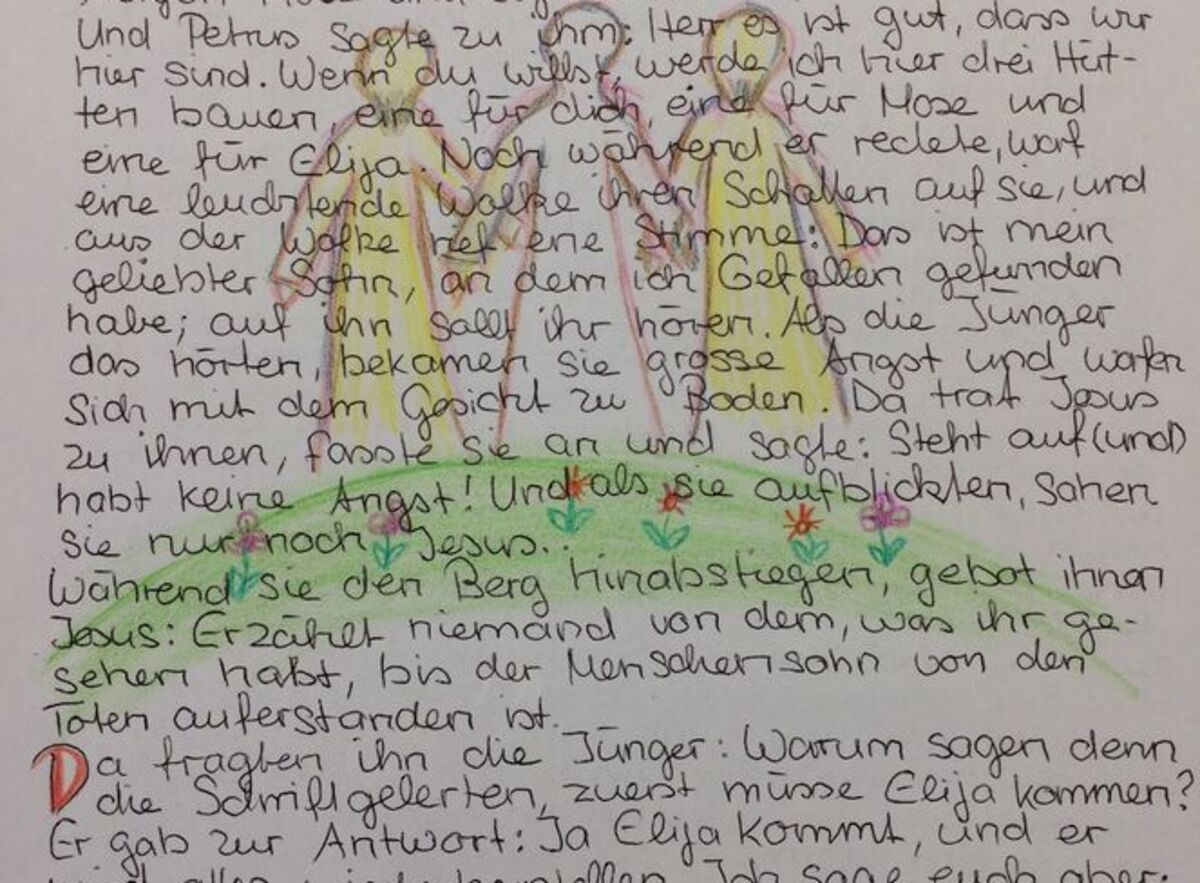 Und Petrus sagte zu ihm: Herr es ist gut, dass wir
hier sind. Wenn du willst, werde ich hier drei Hüt-
ten bauen, eine für dich, eine für Mose und
eine für Elija. Noch während er redete, warf
eine leuchtende Wolke ihren Schatten auf sie, und
aus der Wolke rief eine Stimme: Das ist mein
geliebter Sohn, an dem ich Gefallen gefunden
habe; auf ihn sollt ihr hören. Als die Jünger
das hörten, bekamen sie grosse Angst und warfen
sich mit dem Gesicht zu Boden. Da trat Jesus
zu ihnen, fasste sie an und sagte: Steht auf (und)
habt keine Angst! Und als sie aufblickten, sahen
sie nur noch Jesus..
Während sie den Berg hinabstiegen, gebot ihnen
Jesus: Erzählt niemand von dem, was ihr ge-
sehen habt, bis der Menschensohn von den
Toten auferstanden ist.
Da fragten ihn die Jünger: Warum sagen denn
die Schriftgelerten, zuerst müsse Elija kommen?
Er gab zur Antwort: Ja Elija kommt, und er
Ich sage euch aber: